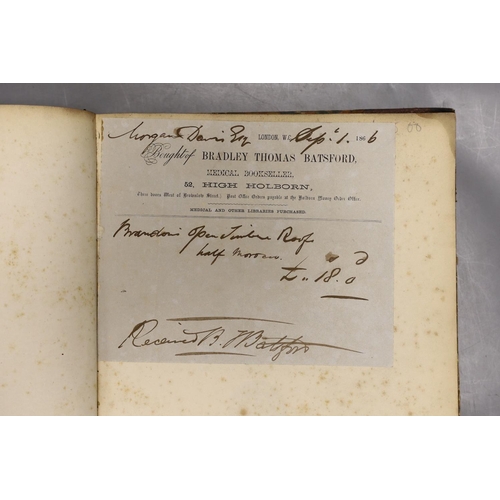 Morgan Davis Esq LONDON, W.C. Sep. 1. 1866
Bought of BRADLEY THOMAS BATSFORD,
MEDICAL BOOKSELLER,
52, HIGH HOLBORN,
Three doors West of Brownlow Street; Post Office Orders payable at the Holborn Money Order Office.
MEDICAL AND OTHER LIBRARIES PURCHASED.
Brandon's Open Timber Roof
half Morocco
18.0
Received B. T Batsford
00